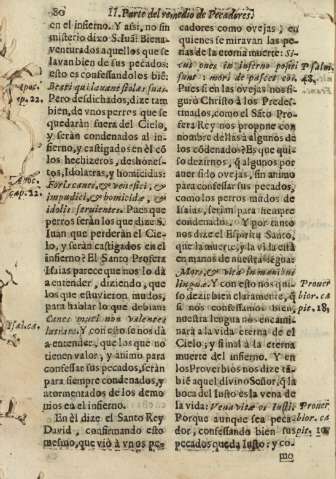 80 II. Parte del remedio de Pecadores.
en el infierno. Y assi, no sin
misterio dizo S. Iuan Biena-
venturados aquellos que se
lavan bien de sus pecados:
esto es confessandolos biē:
Beati qui lavant stolas suas.
Pero desdichados, dize tam
bien, de vnos perros que se
quedaràn fuera del Cielo,
y seràn condenados al in-
fierno, y castigados en èl cō
los hechizeros, deshones-
tos, Idolatras, y homicidas:
Foris canes, & venefici, &
impudici, & homicidæ, &
idolis servientes. Pues que
perros seràn los que dize S.
Iuan que perderàn el Cie-
lo, y seràn castigados en el
infierno? El Santo Profeta
Isaias parece que nos lo dà
a entender, diziendo, que
los que estuvieron mudos,
para hablar lo que debian:
Canes muti non valentes
latrare. Y con esto se nos dà
a entender, que los que no
tienen valor, y animo para
confessar sus pecados, seràn
para siempre condenados, y
atormentados de los demo
nios en el infierno.
En èl dize el Santo Rey
David, confirmando esto
mesmo, que viò à vnos pe-
Apoc.
cap. 22.
Apoc.
cap. 22.
cadores como ovejas, en
quienes se miravan las pe-
nas de la eterna muerte: Si-
cut oves in inferno positi
sunt: mors depascet eos.
Pues si en las ovejas nos fi-
gurò Christo à los Predes-
tinados, como el Sāto Pro-
feta Rey nos propone con
nombre de ellas à algunos de
los cōdenado? Es que qui-
so dezirnos, q̄ algunos por
aver sido ovejas, sin animo
para confessar sus pecados,
como los perros mudos de
Isaias, seràn para siempre
condenados. Y por tanto
nos dize el Espiritu Santo,
que la muerte, y la vida està
en manos de nuestra lengua:
Mors, & vita in manibus
linguæ. Y con esto nos qui-
so dezir bien claramente, q̄
si nos confessamos bien,
nuestra lengua nos encami-
narà a la vida eterna de el
Cielo; y si mal à la eterna
muerte del infierno. Y en
los Proverbios nos dize tā-
biē aquel divino Señor, q̄ la
boca del Iusto es la vena de
la vida: Vena vitæ os Iusti.
Porque aunque sea peca-
dor, confessando bien sus
pecados queda Iusto; y co-
mo
Psalm.
48.
Prover
cap. 18.
Prover
cap. 10.